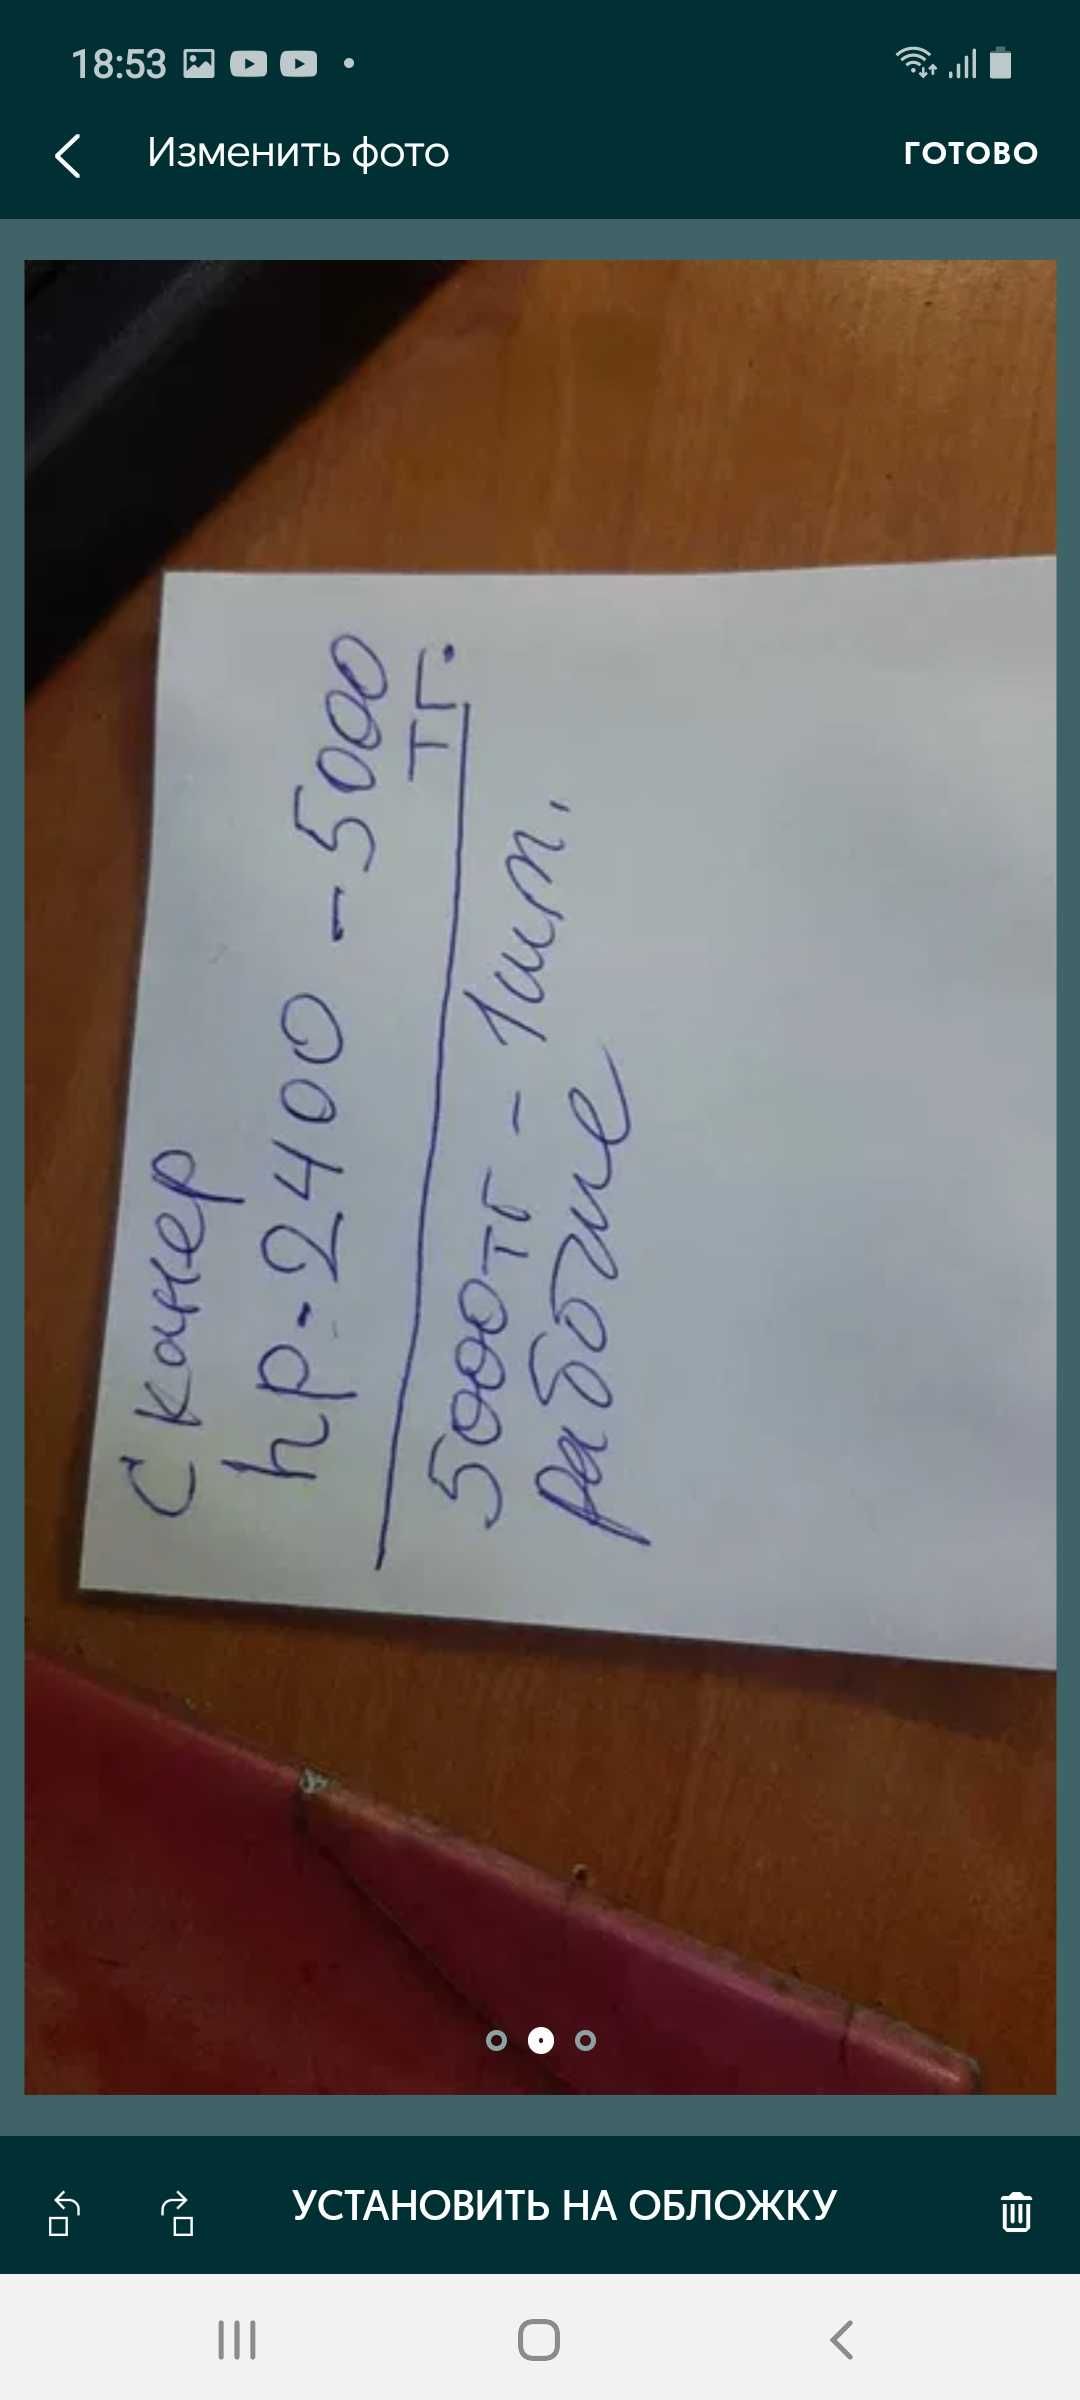 18:53
Изменить фото
ГОТОВО
Сканер
hp-2400-5000
тг.
5000тг-1шт.
рабочие
УСТАНОВИТЬ НА ОБЛОЖКУ